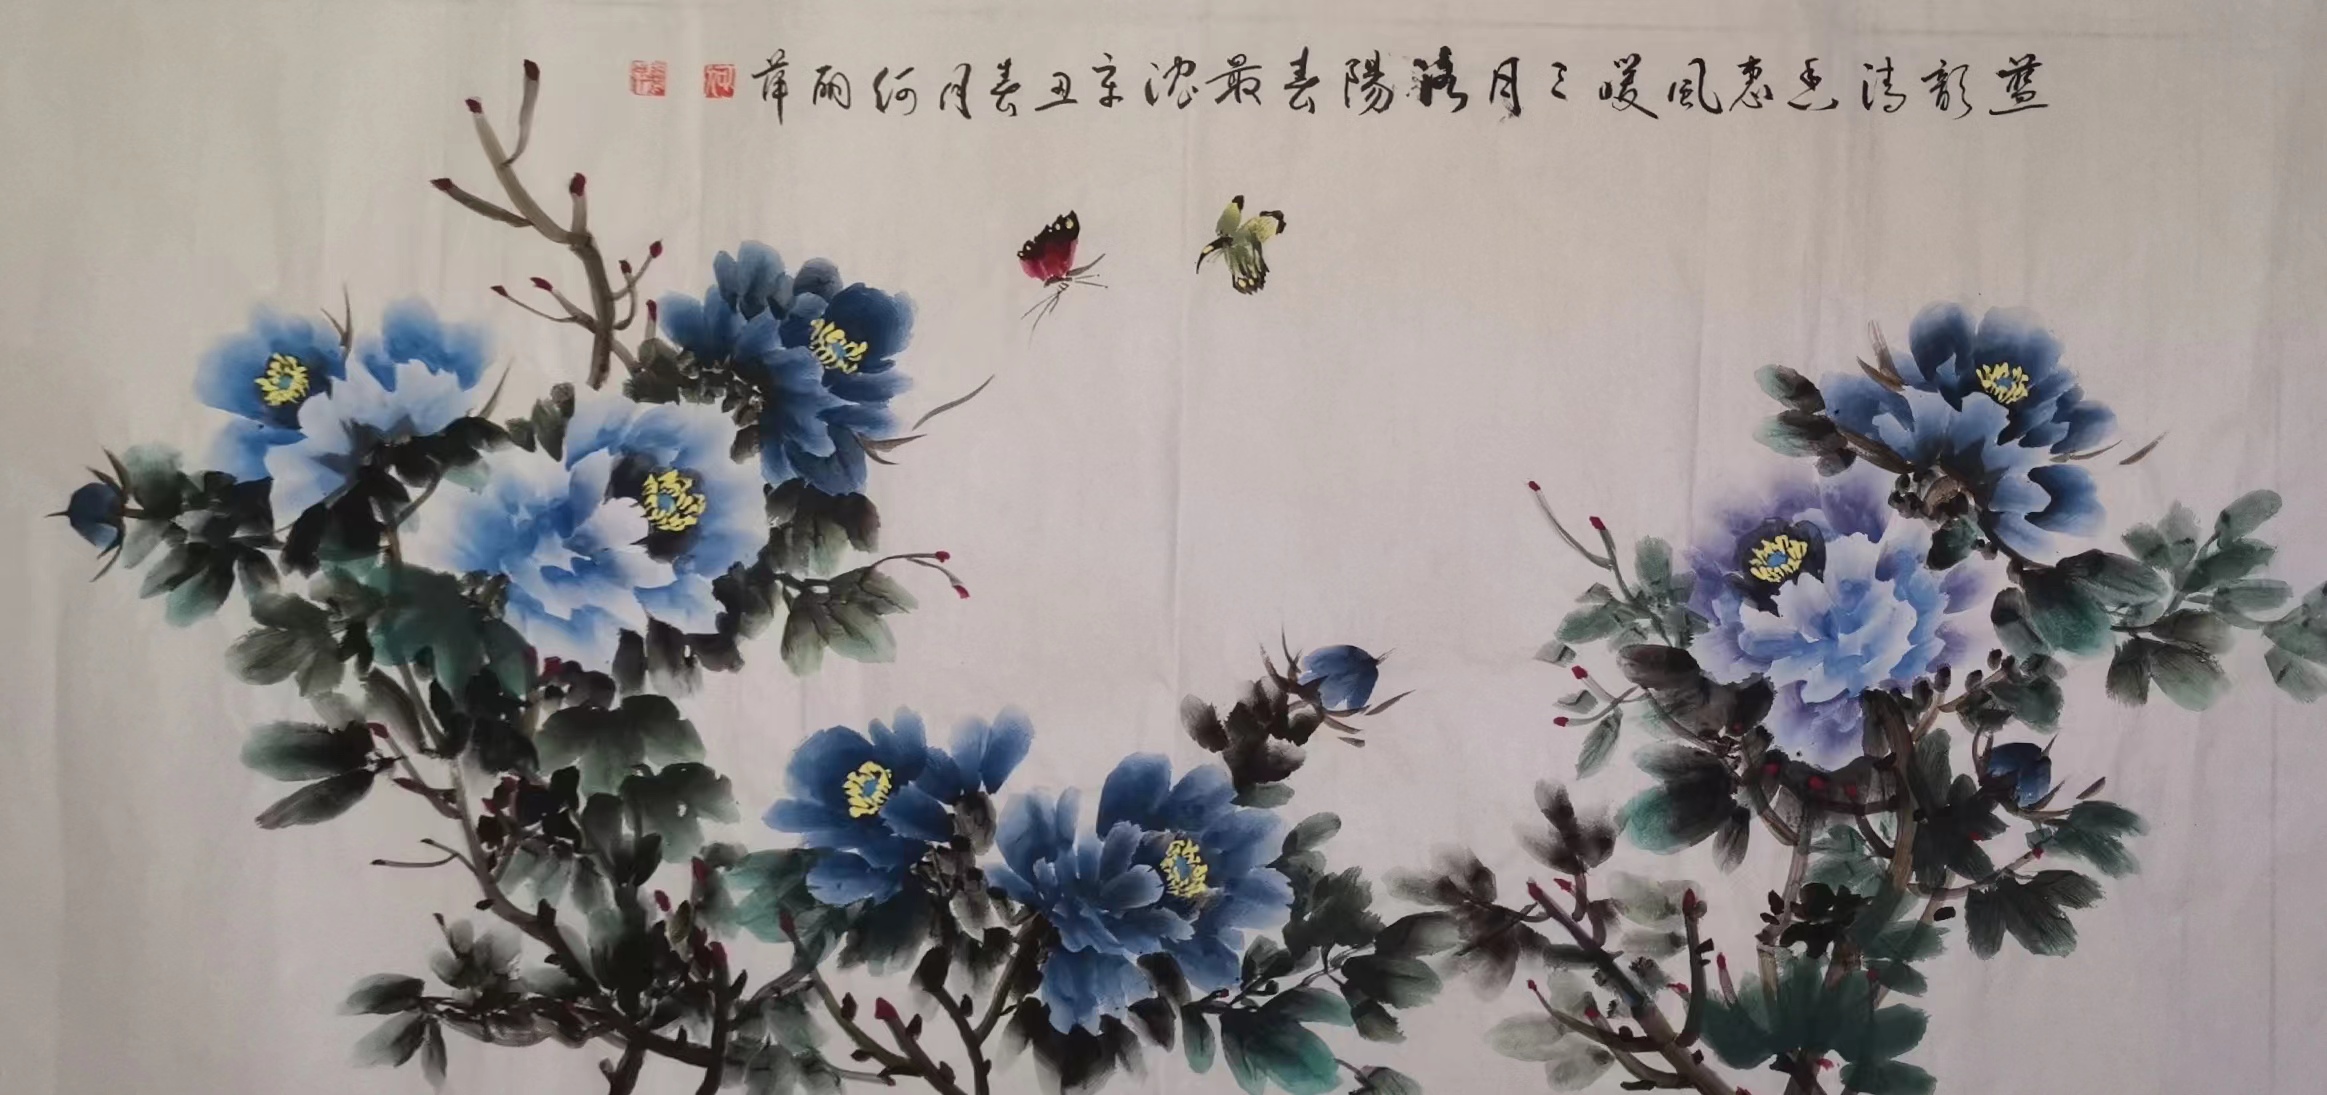 蓝韵清香惠风暖三月洛陽春最浓辛丑春月何丽萍
何